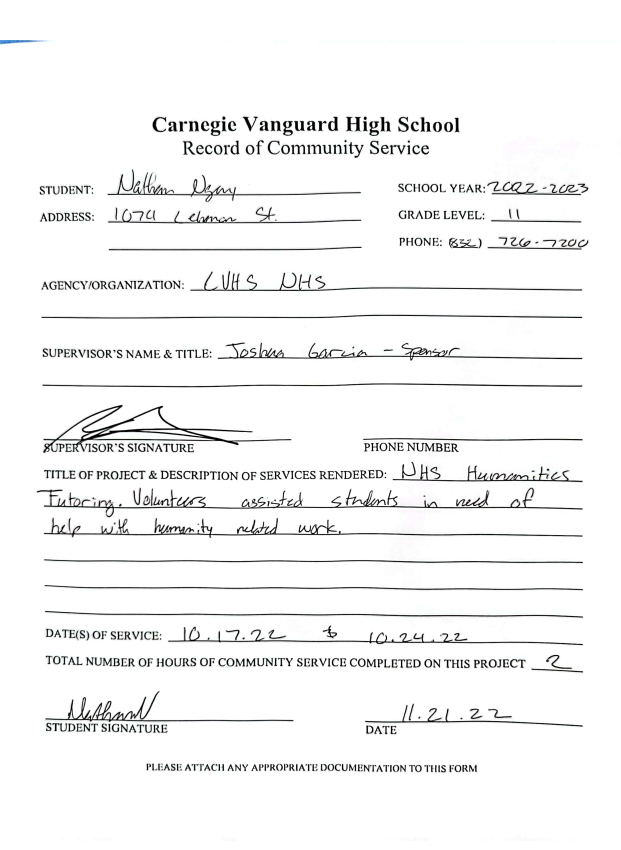 Carnegie Vanguard High School
Record of Community Service
STUDENT: Nathan
SCHOOL YEAR: 2022-2023
ADDRESS: 1074 Lehman St.
GRADE LEVEL: 11
PHONE: (832) 726-7200
AGENCY/ORGANIZATION: CVHS NHS
SUPERVISOR'S NAME & TITLE: Joshua Garcia - Sponsor
SUPERVISOR'S SIGNATURE
PHONE NUMBER
TITLE OF PROJECT & DESCRIPTION OF SERVICES RENDERED: NHS Humanities
Tutoring. Volunteers assisted students in need of
help with humanity related work.
DATE(S) OF SERVICE: 10.17.22 & 10.24.22
TOTAL NUMBER OF HOURS OF COMMUNITY SERVICE COMPLETED ON THIS PROJECT 2
11.21.22
STUDENT SIGNATURE
DATE
PLEASE ATTACH ANY APPROPRIATE DOCUMENTATION TO THIS FORM